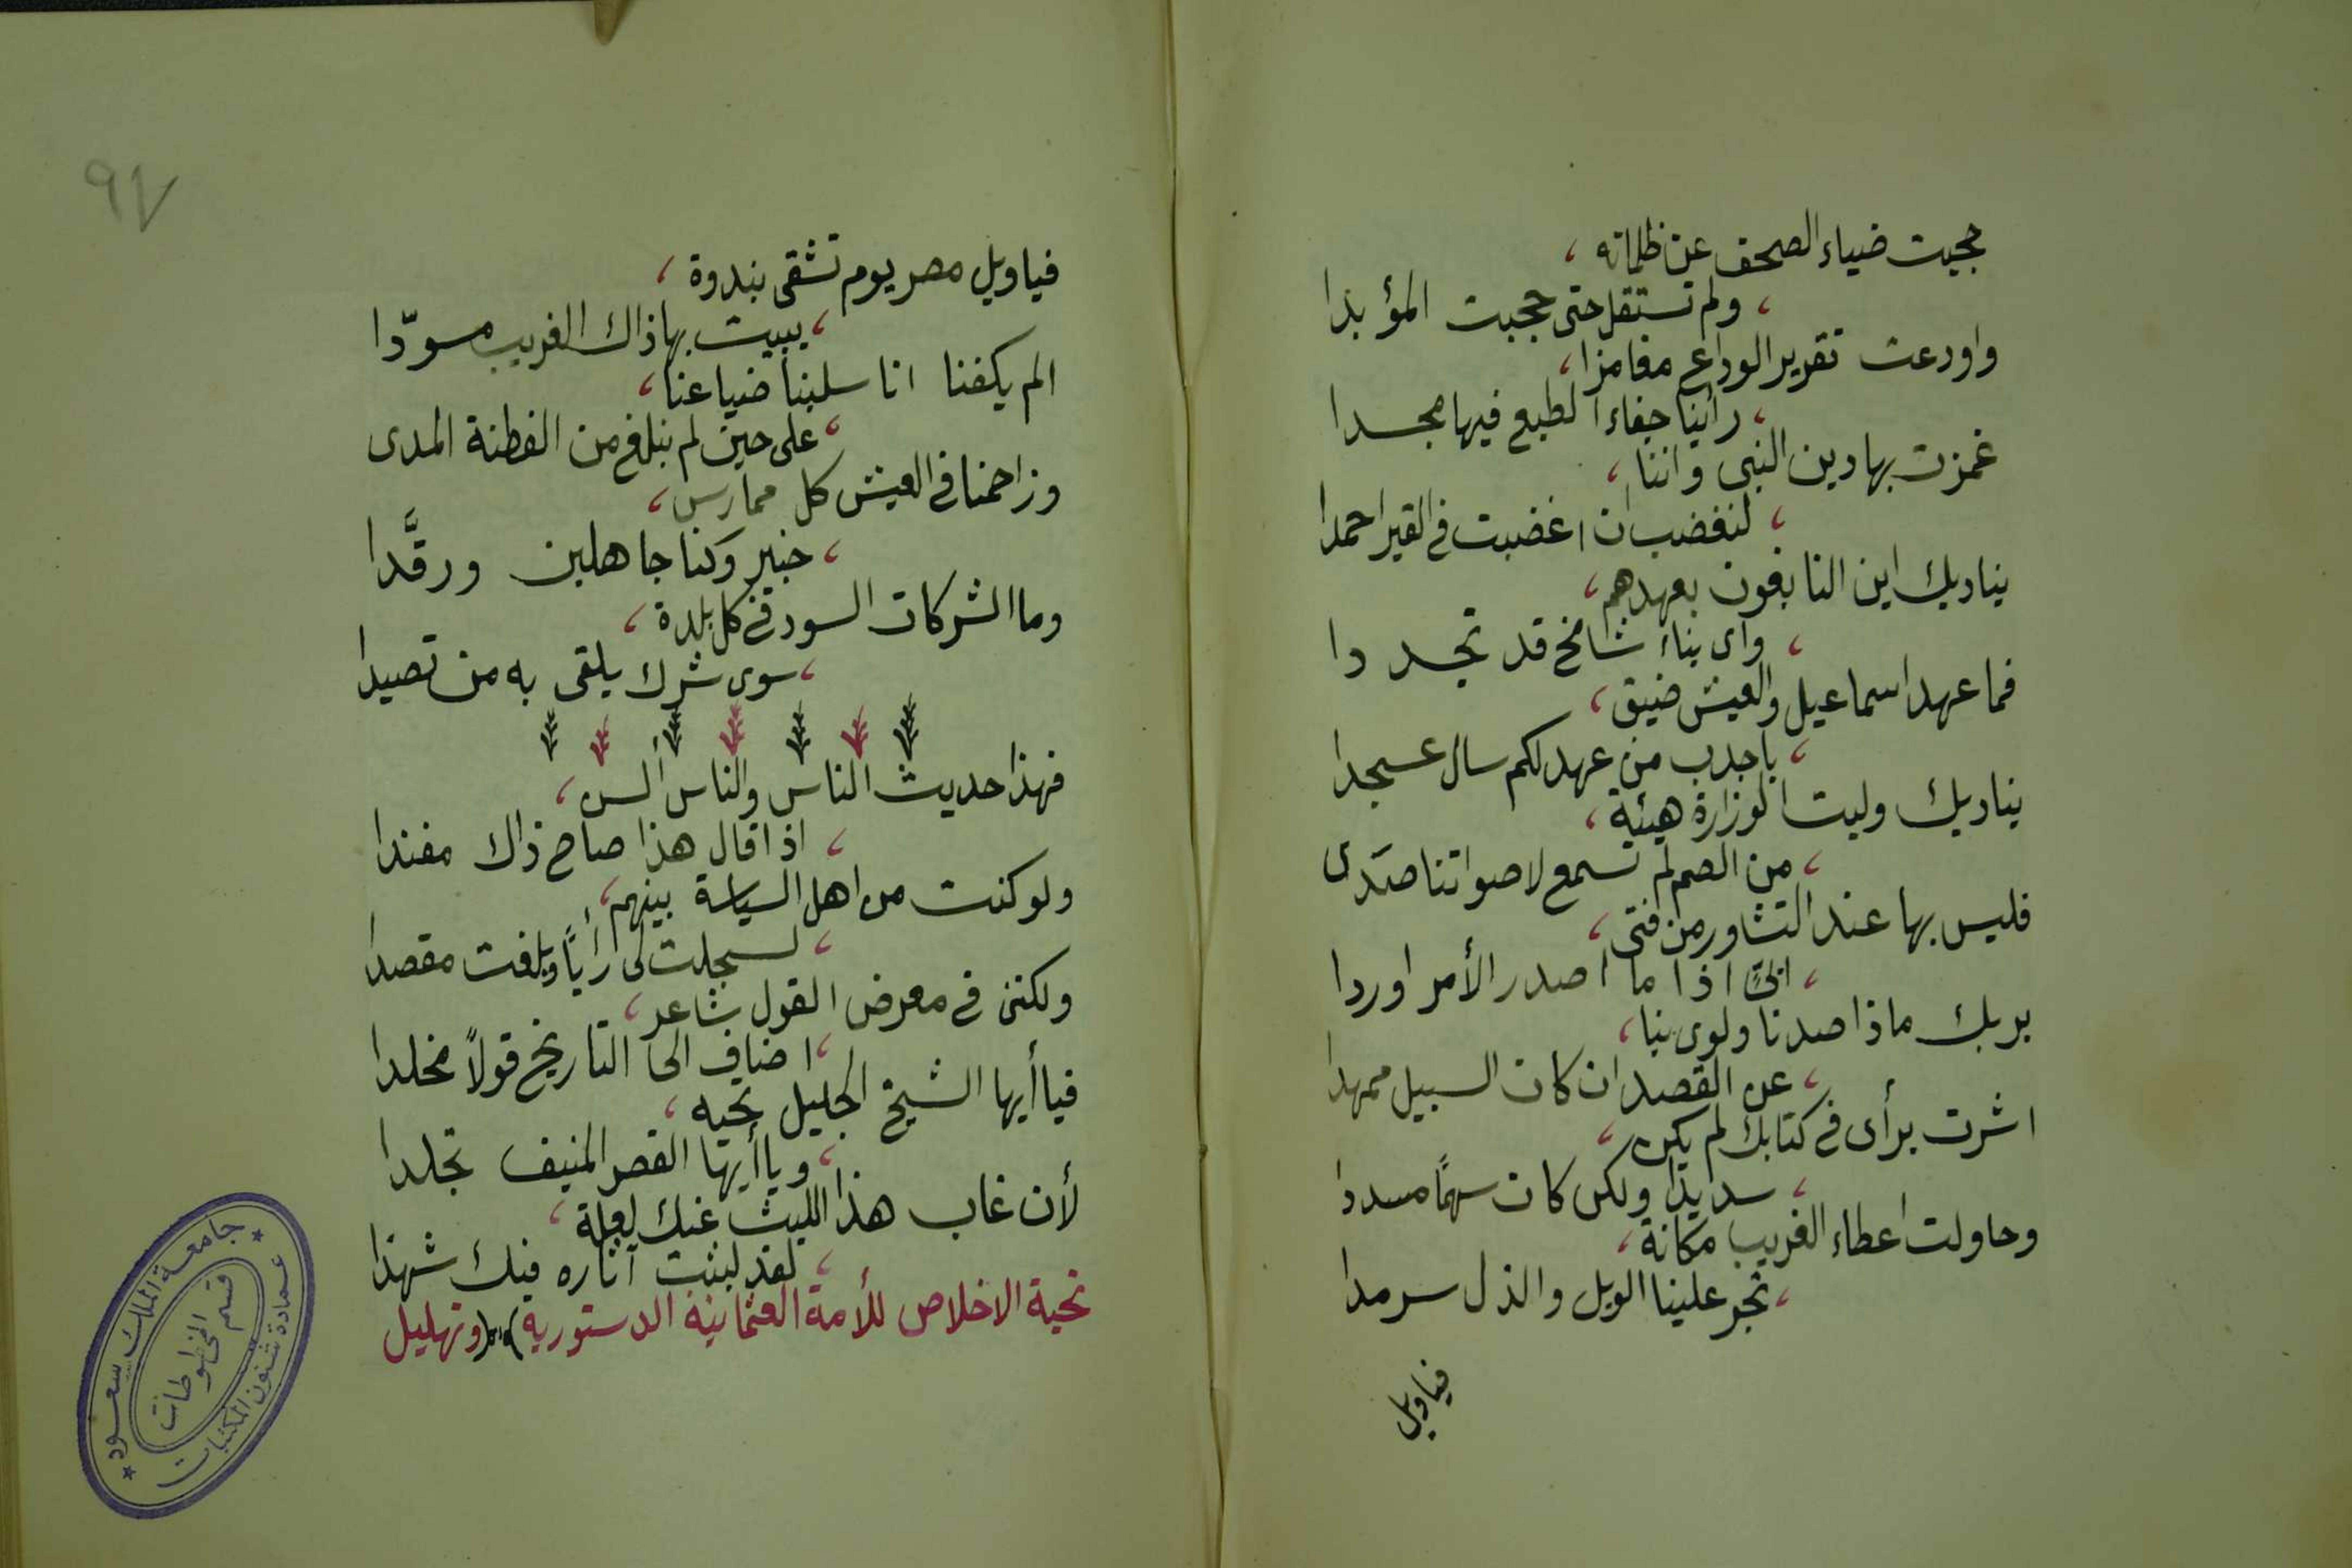 حجبت ضياء الصحف عن ظلماته ،
، ولم تستقل حتى حجبت المؤيدا
واودعت تقرير الوداع مغامزا ،
، رأينا جفاء الطبع فيها مجسدا
غمزت بها دين النبى واننا ،
، لنغضب ان اغضبت فى القبر احمدا
يناديك اين النابغون بعهدهم ،
، وأى بناء شامخ قد تجددا
فما عهد اسماعيل والعيش ضيق ،
، باجدب من عهد لكم سال عسجدا
يناديك وليت الوزارة هيئة ،
، من الصم لم تسمع لاصواتنا صدى
فليس بها عند التشاور من فتى ،
، ابىّ اذا ما اصدر الأمر اوردا
بربك ماذا صدنا ولوى بنا ،
، عن القصد ان كان السبيل ممهدا
اشرت برأى فى كتابك لم يكن ،
، سديدا ولكن كان سهمًا مسددا
وحاولت اعطاء الغريب مكانة ،
، تجر علينا الويل والذل سرمدا
فياويل
٩٧
فياويل مصر يوم تشقى بندوة ،
، يبيت بها ذاك الغريب مسوّدا
الم يكفنا انا سلبنا ضياعنا ،
، على حين لم نبلغ من الفطنة المدى
وزاحمنا فى العيش كل ممارس ،
، خبير وكنا جاهلين ورقَّدا
وما الشركات السود فى كل بلدة ،
، سوى شرك يلقى به من تصيدا
فهذا حديث الناس والناس ألسن ،
، اذا قال هذا صاح ذاك مفندا
ولو كنت من اهل السياسة بينهم ،
، لسجلت لى رأيًا وبلغت مقصدا
ولكننى فى معرض القول شاعر ،
، اضاف الى التاريخ قولاً مخلدا
فيا أيها الشيخ الجليل تحيه ،
، ويا أيها القصر المنيف تجلدا
لأن غاب هذا الليث عنك لعلة ،
، لقد لبثت آثاره فيك شهدا
تحية الاخلاص للأمة العثمانية الدستورية) (وتهليل
جامعة الملك سعود
قسم المخطوطات
عمادة شئون المكتبات